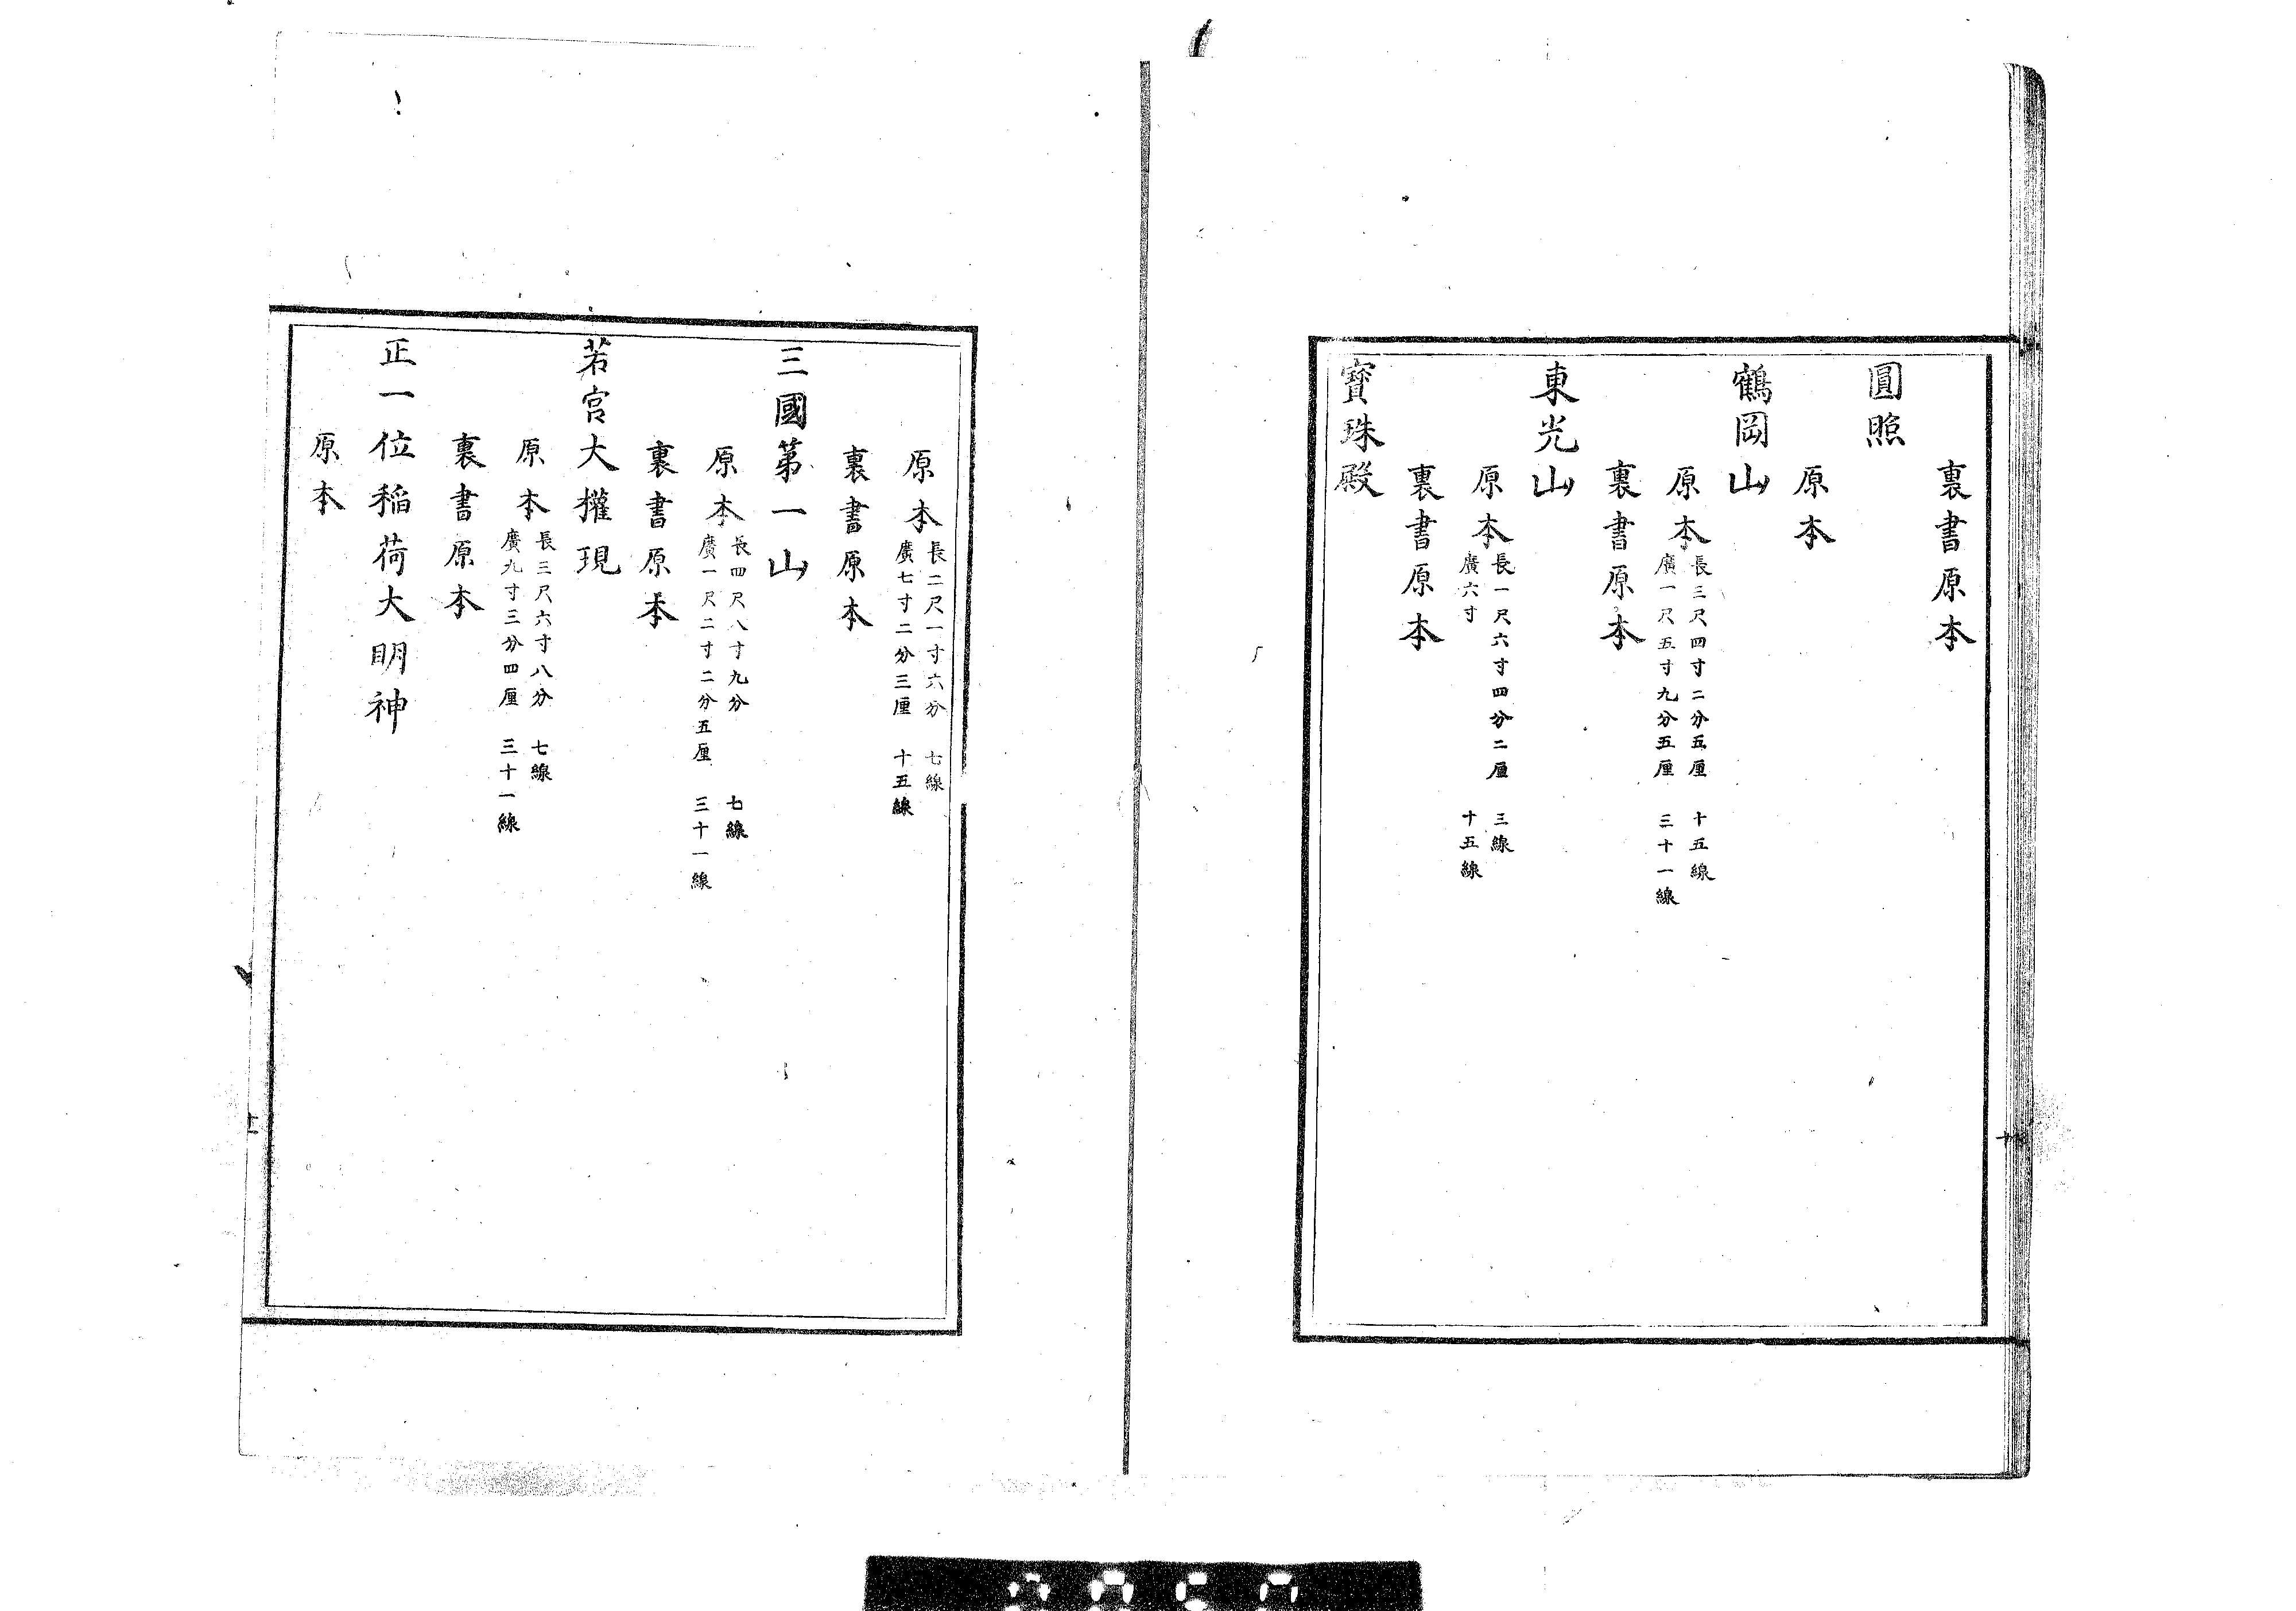 裏書原本
圓照
原本
鶴岡山
原本
長三尺四寸二分五厘　十五線
廣一尺五寸九分五厘　三十一線
裏書原本
東光山
原本
長一尺六寸四分二厘　三線
廣六寸　十五線
裏書原本
寶珠殿
原本
長二尺一寸六分　七線
廣七寸二分三厘　十五線
裏書原本
三國第一山
原本
長四尺八寸九分　七線
廣一尺二寸二分五厘　三十一線
裏書原本
若宮大權現
原本
長三尺六寸八分　七線
廣九寸三分四厘　三十一線
裏書原本
正一位稲荷大明神
原本